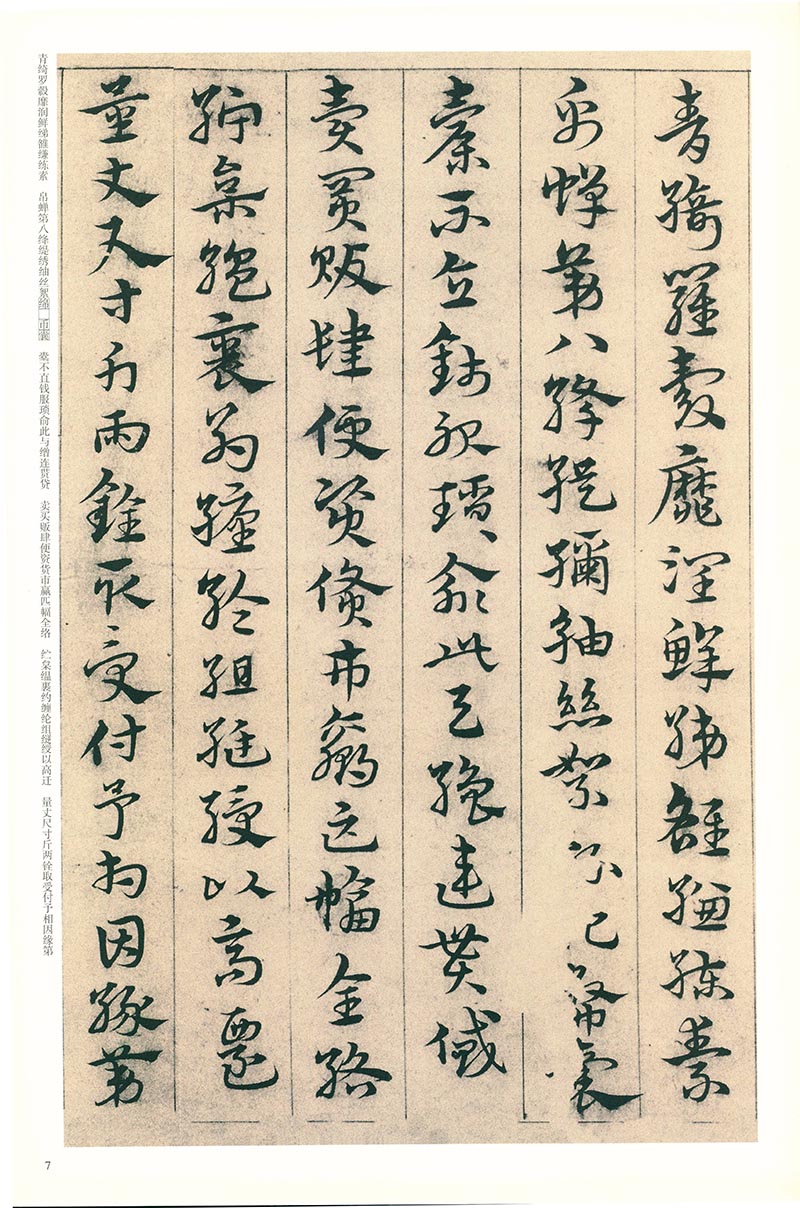 青綺羅縠靡潤鮮綈雒縑練素
帛蟬第八絳緹繡紬絲絮
橐不直錢服瑣俞此與繒連貰貸
賣買販肆便資貨市贏匹幅全絡
紵枲縕裹約纏綸組縌綬以高遷
量丈尺寸斤兩銓取受付予相因緣第
青绮罗縠靡润鲜绨雒缣练素　帛蝉第八绛缇绣䌷丝絮绵　币囊　橐不直钱服琐俞此与缯连贳贷　卖买贩肆便资货市赢匹幅全络　纻枲缊裹约缠纶组縌绶以高迁　量丈尺寸斤两铨取受付予相因缘第
7